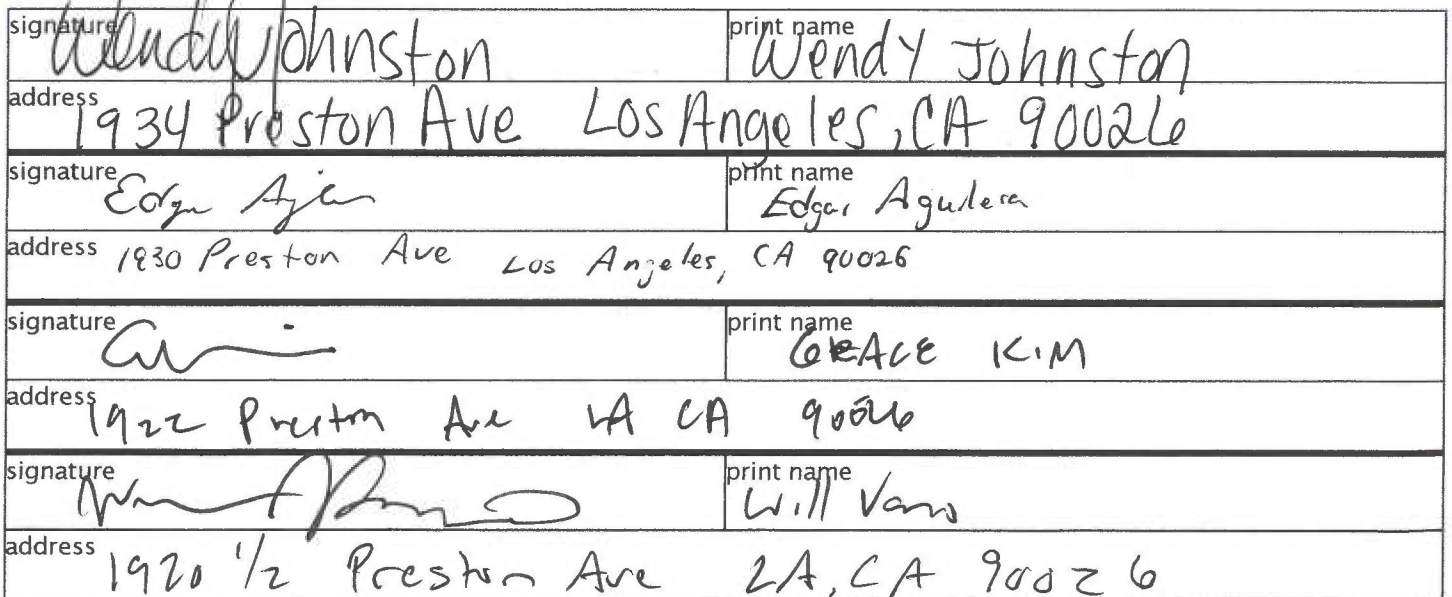 signature Wendy Johnston print name Wendy Johnston
address 1934 Preston Ave Los Angeles, CA 90026
signature print name Edgar Aguilera
address 1930 Preston Ave Los Angeles, CA 90026
signature print name GRACE KIM
address 1922 Preston Ave LA CA 90026
signature print name Will
address 1920 1/2 Preston Ave LA, CA 90026